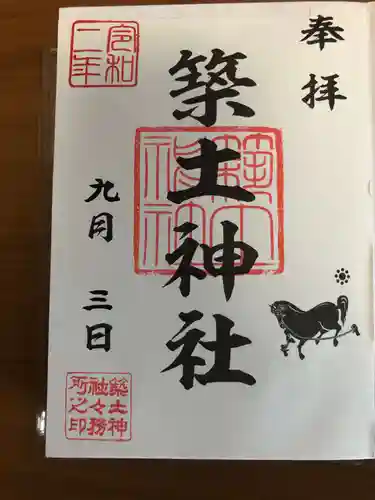 奉拝
築土神社
令和
二年
九月三日
築土神
社々務
所之印